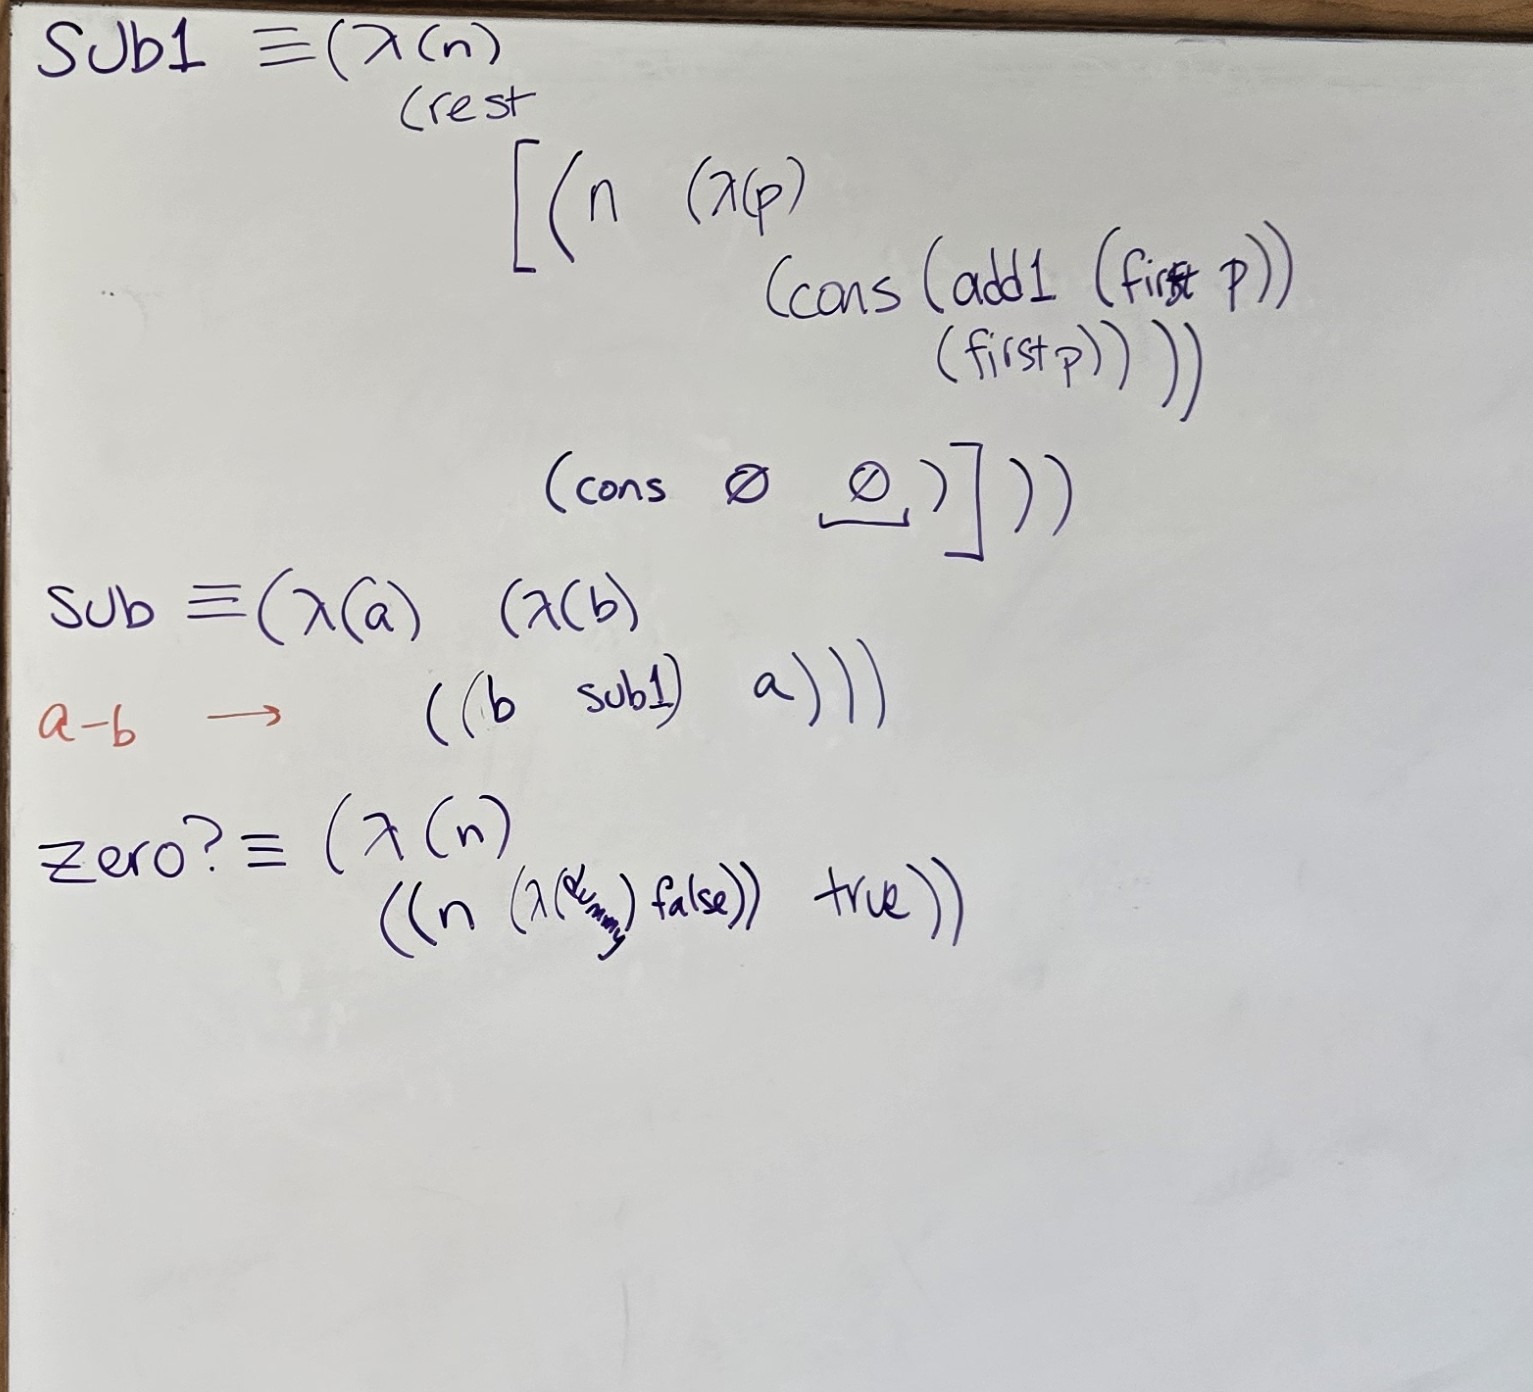 SUb1 ≡ (λ(n)
(rest
[(n (λ(p)
(cons (add1 (first p))
(first p)) )))
(cons ∅ ∅ )] ))
sub ≡ (λ(a) (λ(b)
a-b → ((b sub1) a)))
zero? ≡ (λ (n)
((n (λ(dummy) false)) true))